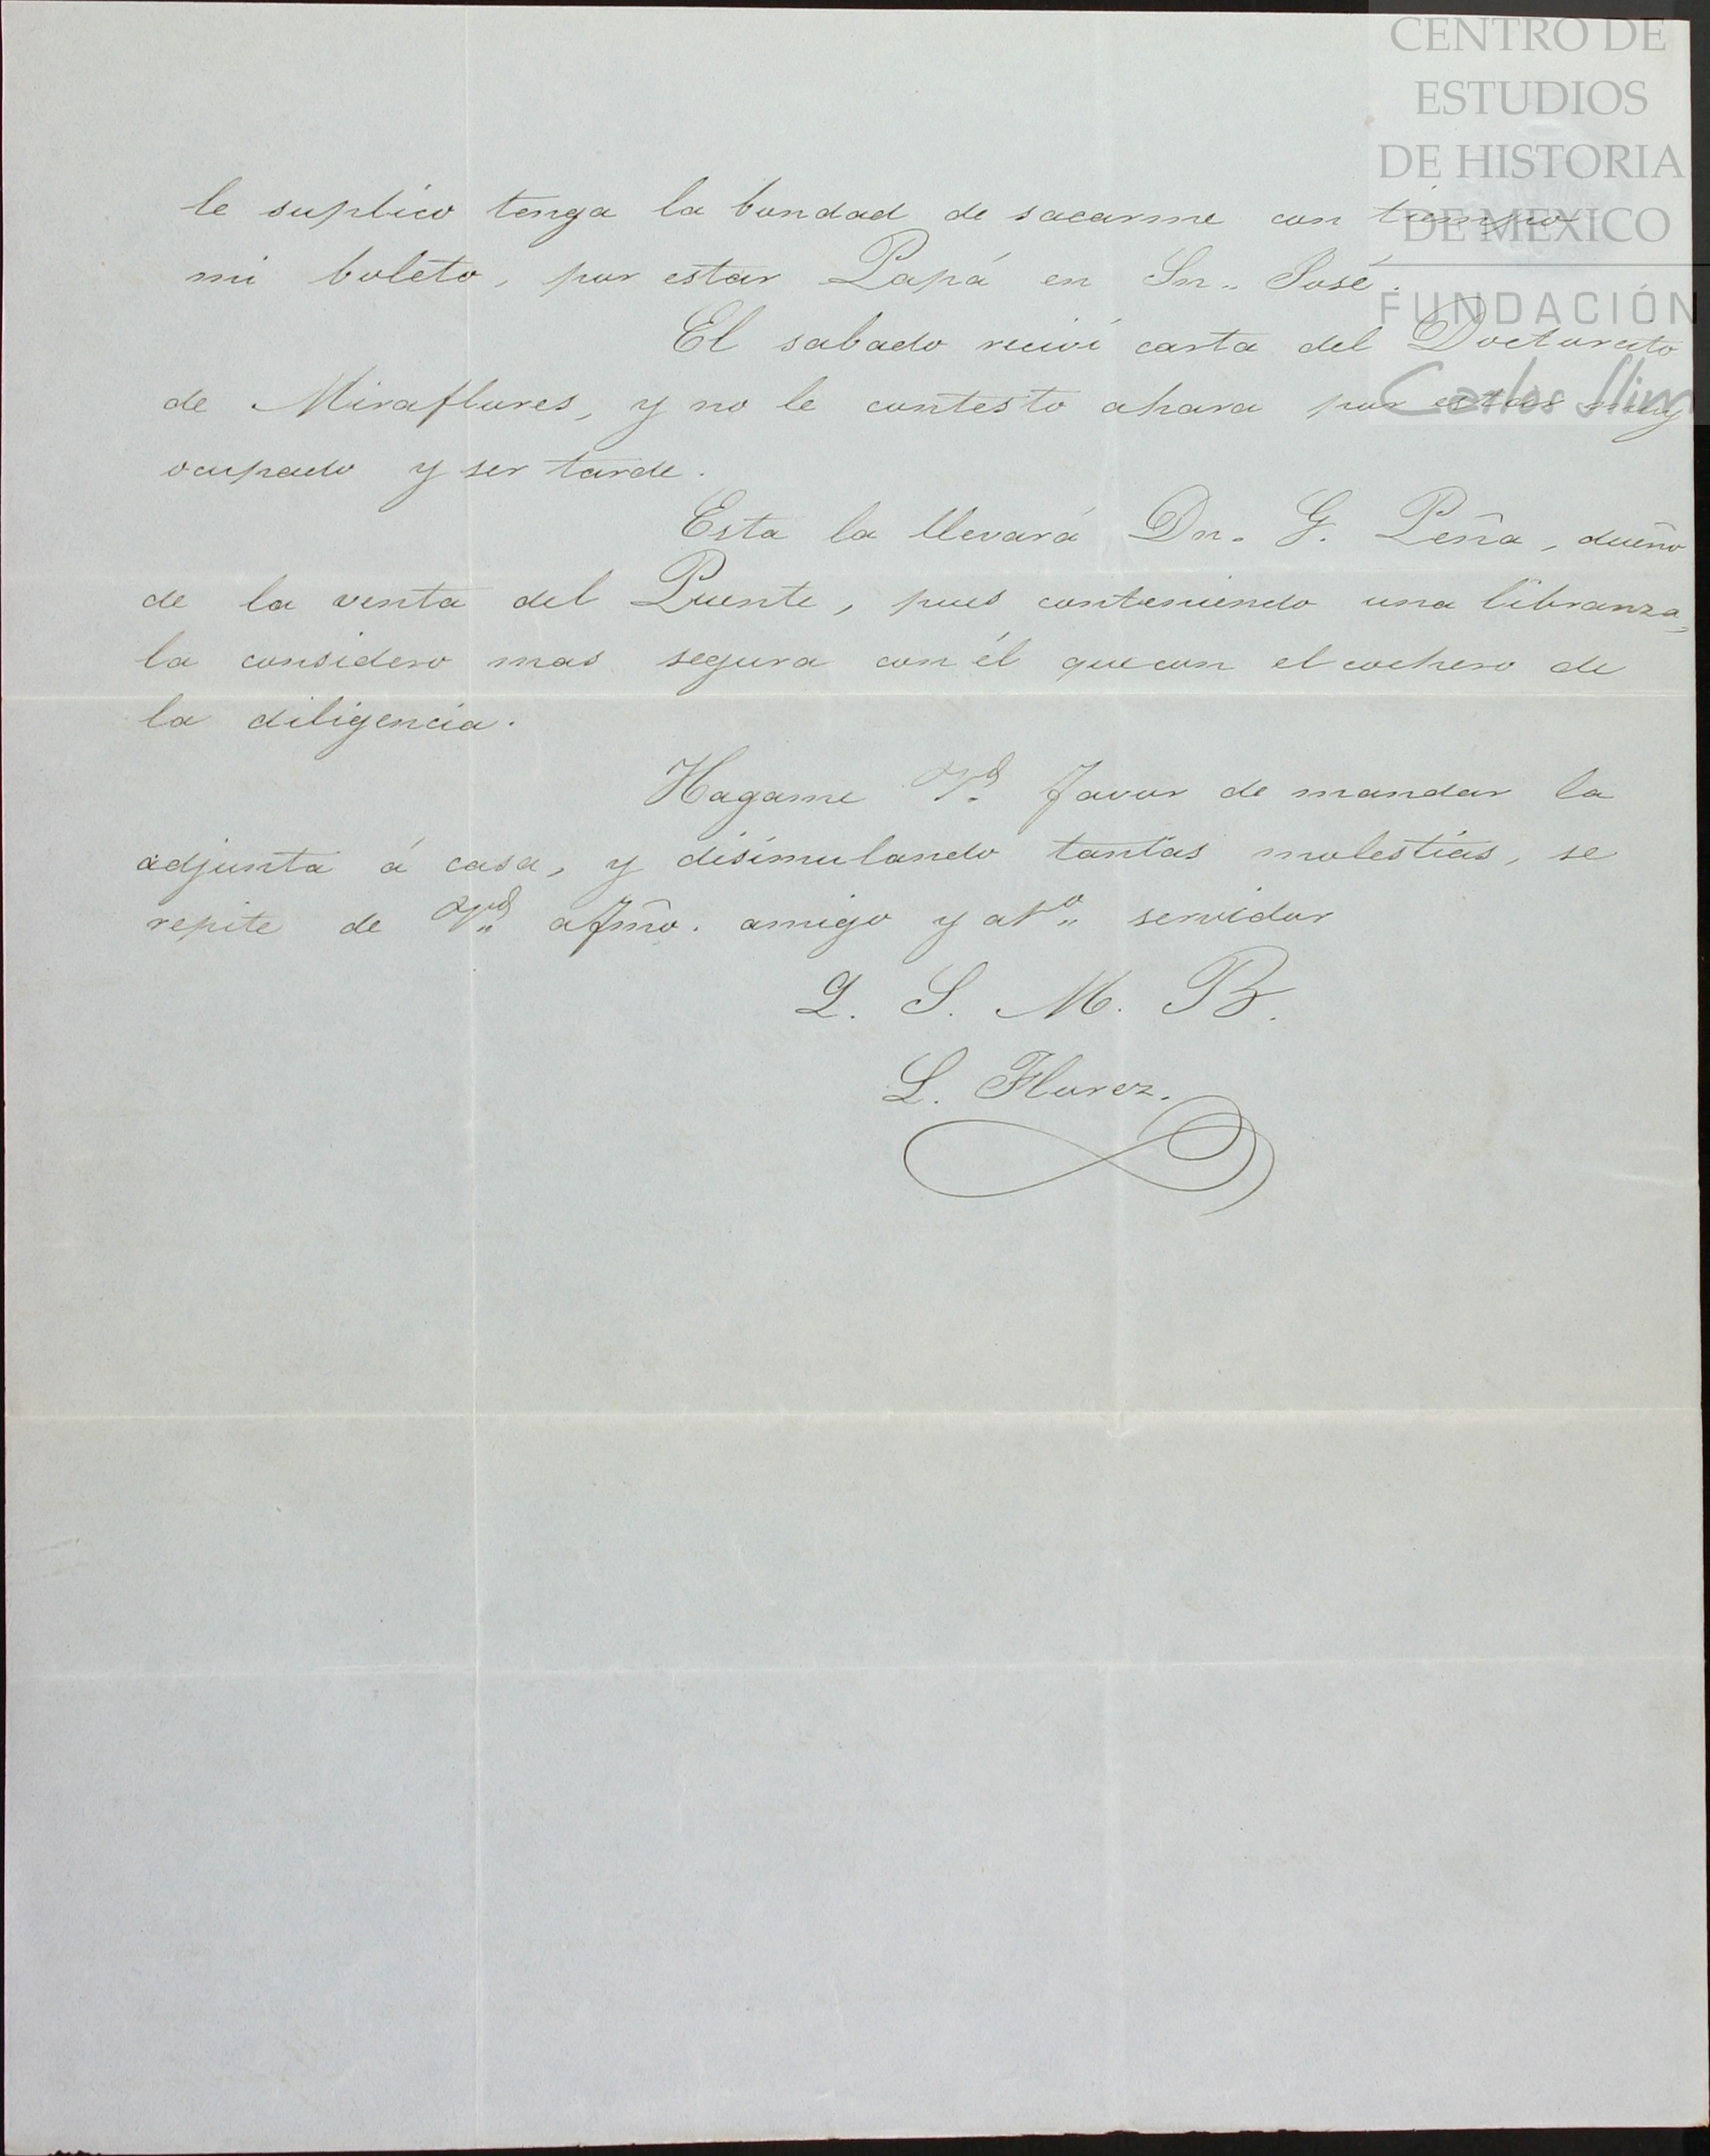 CENTRO DE
ESTUDIOS
DE HISTORIA
DE MEXICO
FUNDACIÓN
Carlos Slim
le suplico tenga la bondad de sacarme con tiempo
mi boleto, por estar Papá en Sn. José.
El sabado reciví carta del Doctorcito
de Miraflores, y no le contesto ahora por estar muy
ocupado y ser tarde.
Esta la llevará Dn. G. Peña, dueño
de la venta del Puente, pues conteniendo una libranza,
la considero mas segura con él que con el cochero de
la diligencia.
Hagame Vd. favor de mandar la
adjunta á casa, y disimulando tantas molestias, se
repite de Vd. afmo. amigo y ato. servidor
Q. S. M. B.
L. Florez.